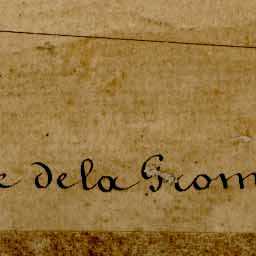 e de la Grom